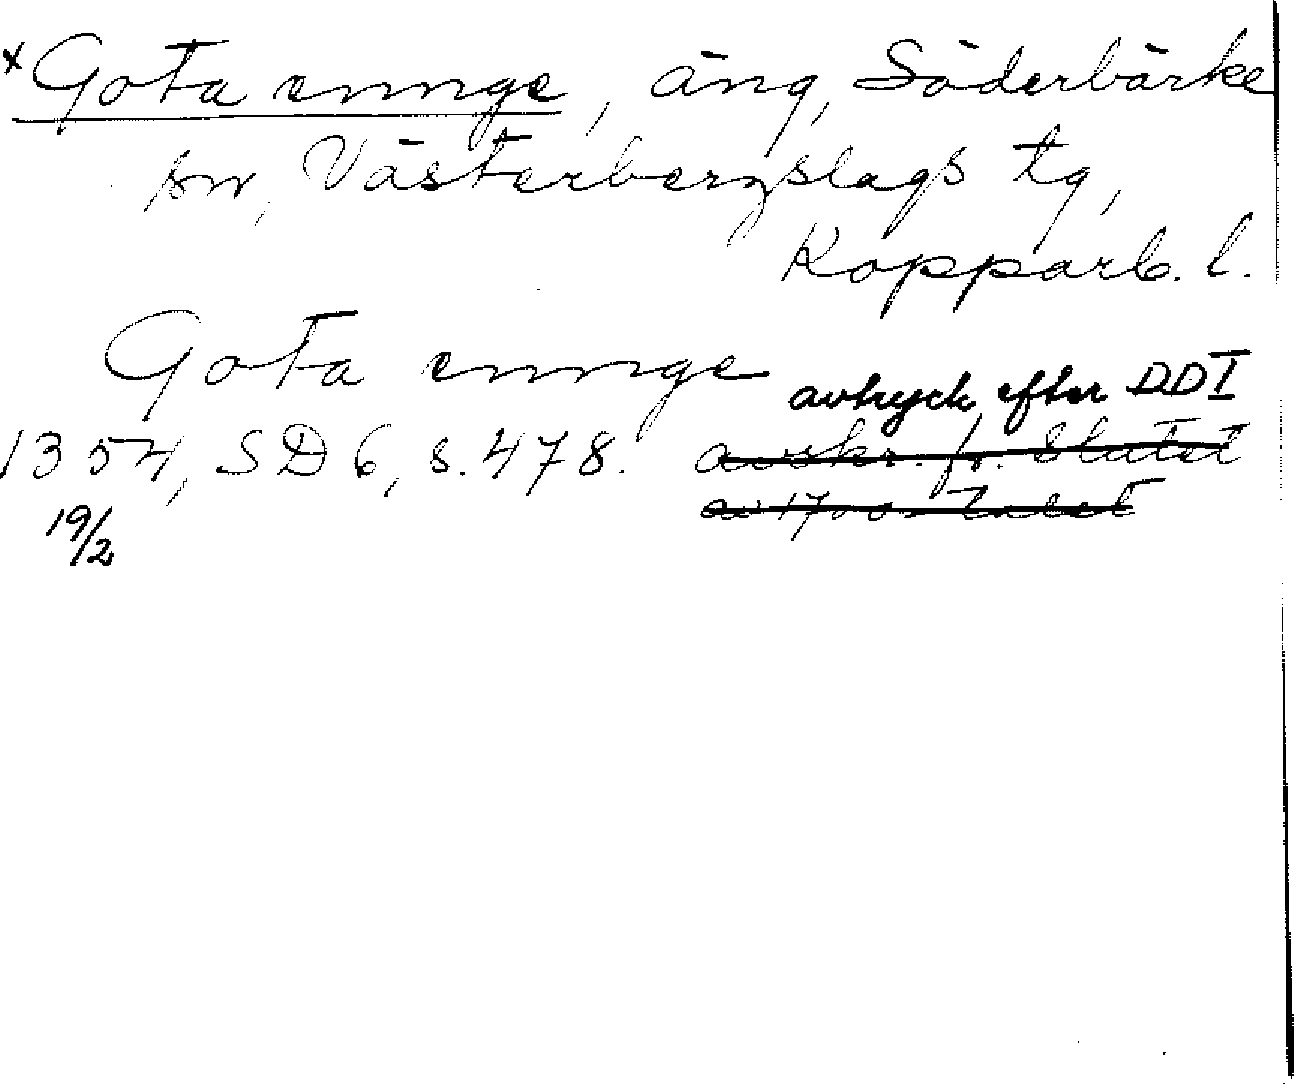 *Gota ennge, äng, Söderbärke
sn, Västerbergslags tg,
Kopparb. l.
Gota ennge
avtryck efter DD I
1354, SD 6, s. 478. avskr. fr. slutet
av 1700-talet
19/2